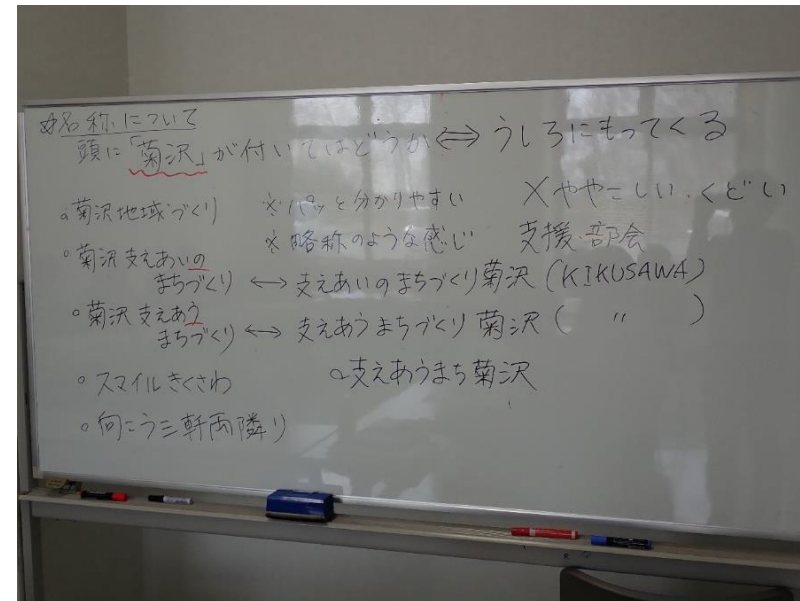 ☆名称について
頭に「菊沢」が付いてはどうか ⇔ うしろにもってくる
。菊沢地域づくり ※パッと分かりやすい ×ややこしい・くどい
※略称のような感じ 支援・部会
。菊沢支えあいの
まちづくり ↔ 支えあいのまちづくり菊沢(KIKUSAWA)
。菊沢支えあう
まちづくり ↔ 支えあうまちづくり 菊沢( 〃 )
。スマイルきくさわ 。支えあうまち菊沢
。向こう三軒両隣り